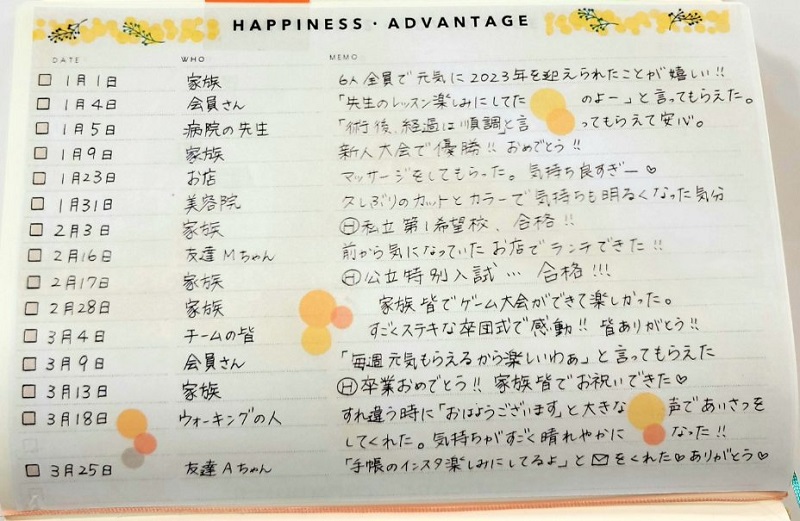 HAPPINESS・ADVANTAGE
DATE WHO MEMO
1月1日 家族 6人全員で元気に2023年を迎えられたことが嬉しい!!
1月4日 会員さん 「先生のレッスン楽しみにしてたのよー」と言ってもらえた。
1月5日 病院の先生 「術後、経過は順調」と言ってもらえて安心。
1月9日 家族 新人大会で優勝!! おめでとう!!
1月23日 お店 マッサージをしてもらった。気持ち良すぎー♡
1月31日 美容院 久しぶりのカットとカラーで気持ちも明るくなった気分
2月3日 家族 Ⓗ私立第1希望校、合格!!
2月16日 友達Mちゃん 前から気になっていたお店でランチできた!!
2月17日 家族 Ⓗ公立特別入試… 合格!!!
2月28日 家族 家族皆でゲーム大会ができて楽しかった。
3月4日 チームの皆 すごくステキな卒団式で感動!! 皆ありがとう!!
3月9日 会員さん 「毎週元気もらえるから楽しいわぁ」と言ってもらえた
3月13日 家族 Ⓗ卒業おめでとう!! 家族皆でお祝いできた♡
3月18日 ウォーキングの人 すれ違う時に「おはようございます」と大きな声であいさつを
してくれた。気持ちがすごく晴れやかになった!!
3月25日 友達Aちゃん 「手帳のインスタ楽しみにしてるよ」と✉をくれた♡ありがとう♡